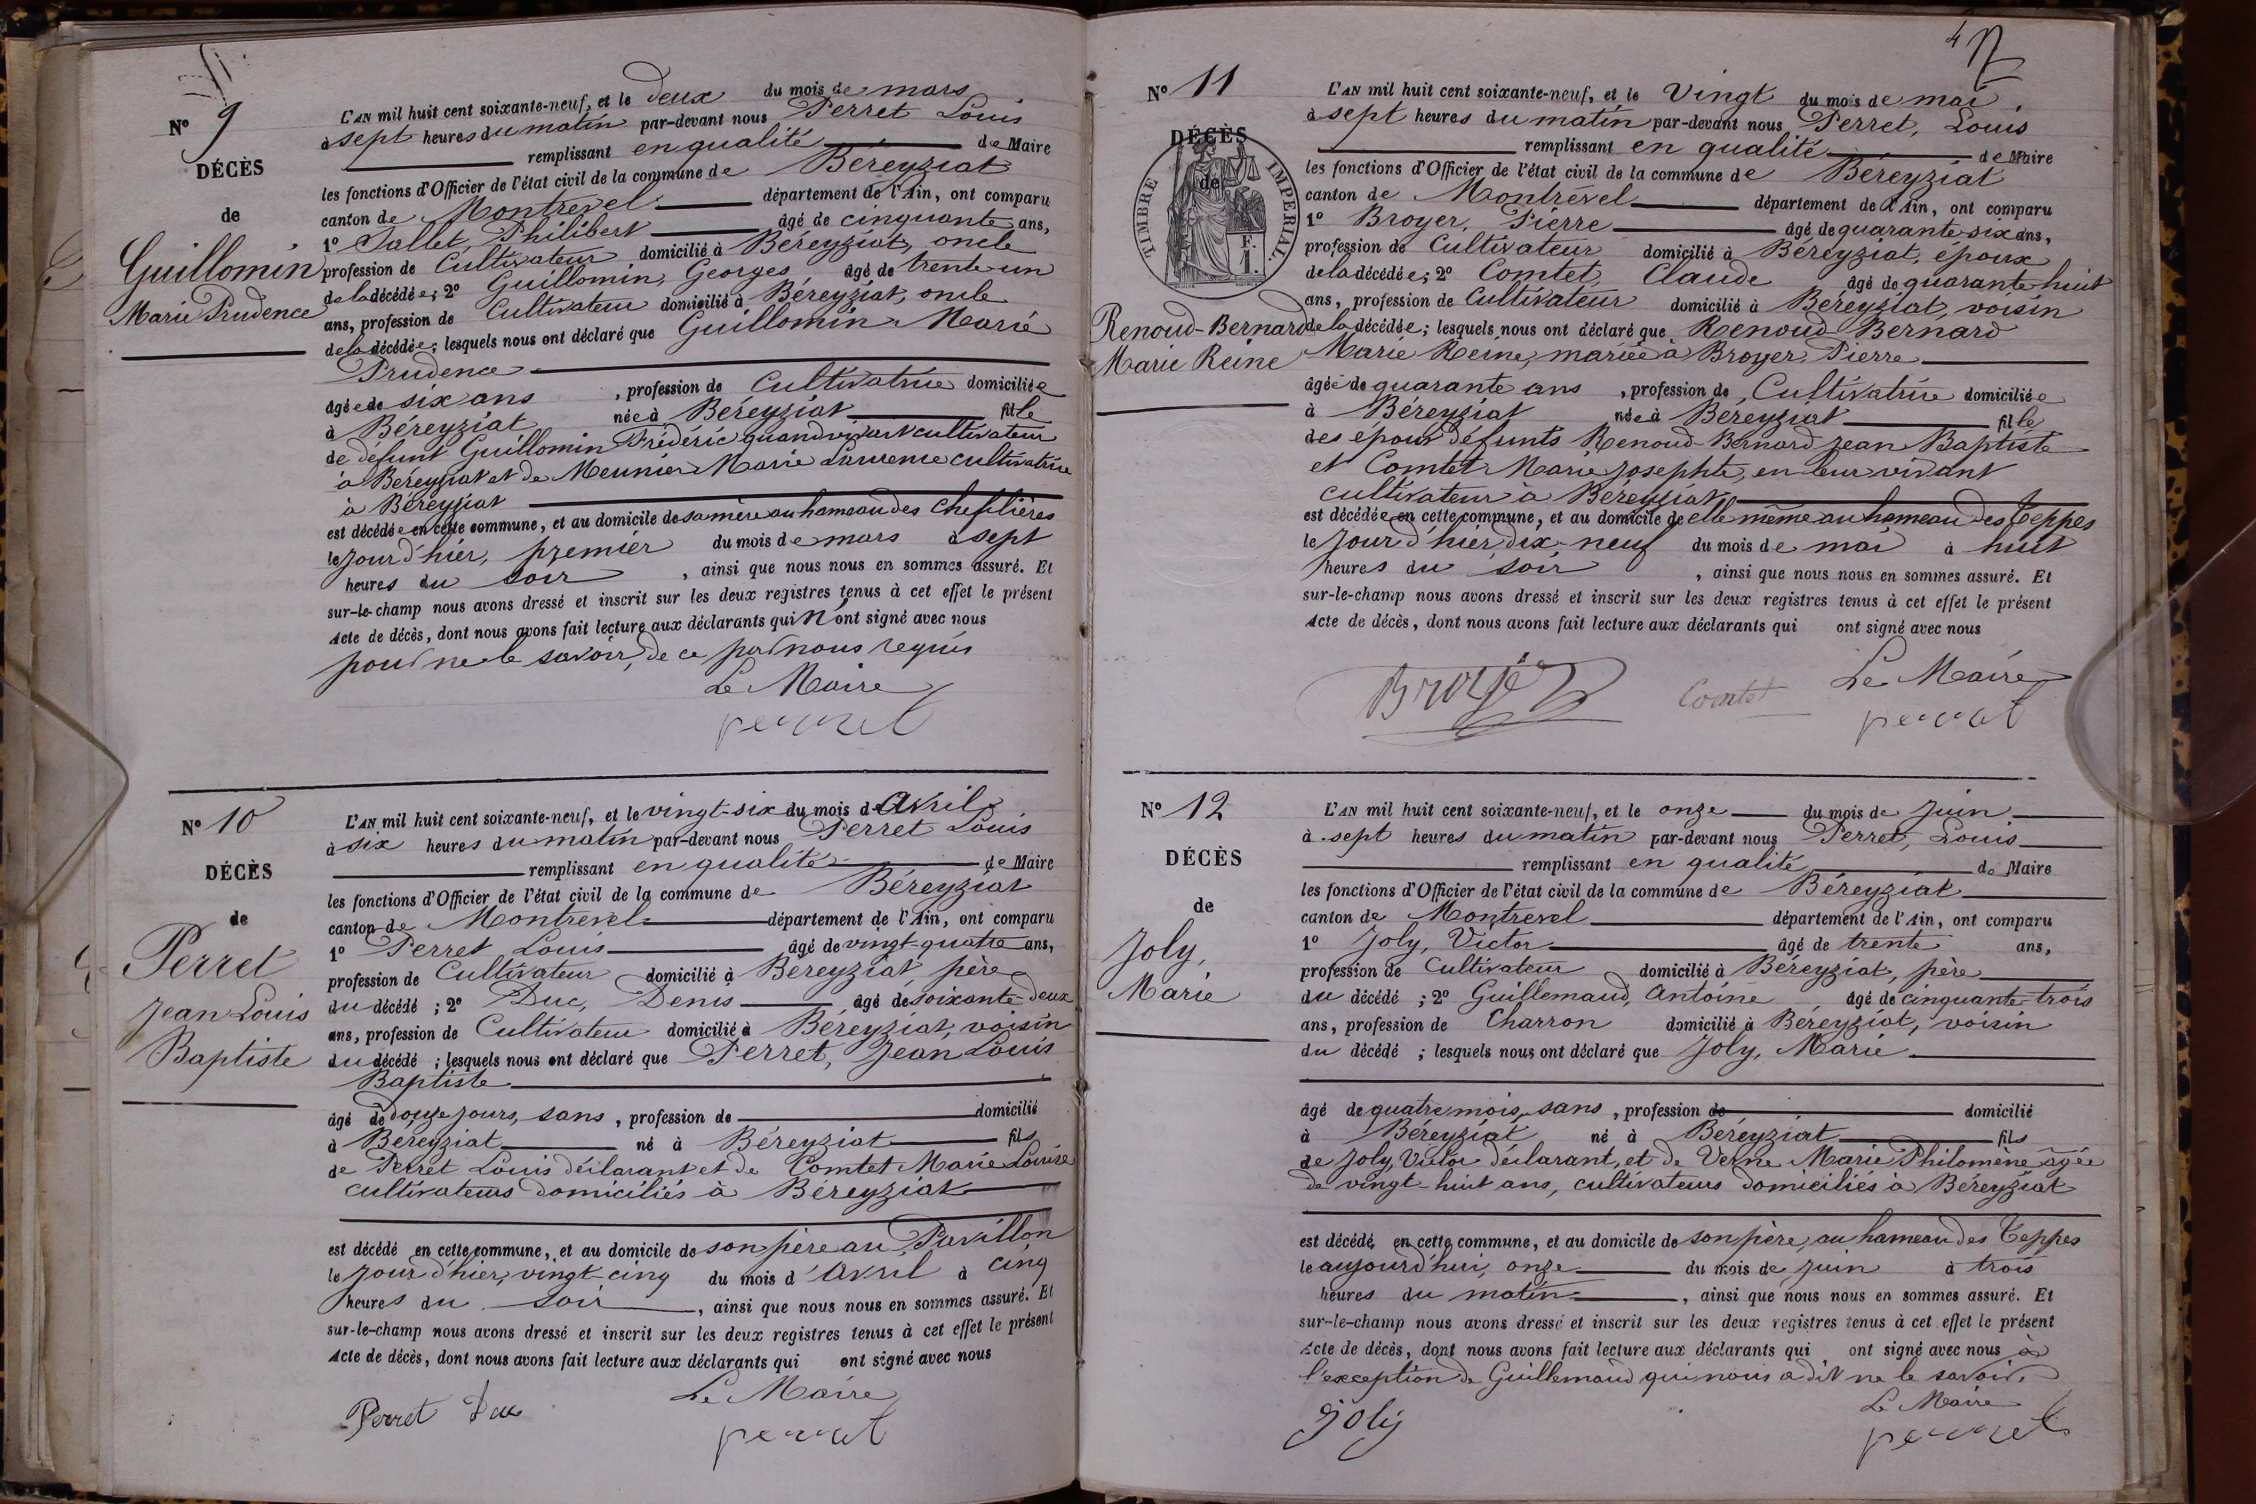 Nº 9
DÉCÈS
de
Guillomin
Marie Prudence
L'AN mil huit cent soixante-neuf, et le deux du mois de mars
à sept heures du matin par-devant nous Perret Louis
remplissant en qualité de Maire
les fonctions d'Officier de l'état civil de la commune de Béreyziat
canton de Montrevel département de l'Ain, ont comparu
1º Jallet, Philibert âgé de cinquante ans,
profession de Cultivateur domicilié à Béreyziat, oncle
de la décédée; 2º Guillomin, Georges, âgé de trente un
ans, profession de Cultivateur domicilié à Béreyziat, oncle
de la décédée; lesquels nous ont déclaré que Guillomin Marie
Prudence
âgée de six ans, profession de Cultivatrice domiciliée
à Béreyziat née à Béreyziat fille
de défunt Guillomin Frédéric quand vivant cultivateur
à Béreyziat et de Meunier Marie Laurence cultivatrice
à Béreyziat
est décédée en cette commune, et au domicile de sa mère au hameau des
le jour d'hier, premier du mois de mars à sept
heures du soir, ainsi que nous nous en sommes assuré. Et
sur-le-champ nous avons dressé et inscrit sur les deux registres tenus à cet effet le présent
Acte de décès, dont nous avons fait lecture aux déclarants qui n'ont signé avec nous
pour ne le savoir, de ce par nous requis
Le Maire
perret
Nº 10
DÉCÈS
de
Perret
Jean Louis
Baptiste
L'AN mil huit cent soixante-neuf, et le vingt-six du mois d'Avril
à six heures du matin par-devant nous Perret Louis
remplissant en qualité de Maire
les fonctions d'Officier de l'état civil de la commune de Béreyziat
canton de Montrevel département de l'Ain, ont comparu
1º Perret Louis âgé de vingt-quatre ans,
profession de Cultivateur domicilié à Béreyziat, père
du décédé ; 2º Duc, Denis âgé de soixante-deux
ans, profession de Cultivateur domicilié à Béreyziat, voisin
du décédé ; lesquels nous ont déclaré que Perret, Jean Louis
Baptiste
âgé de douze jours, sans, profession de domicilié
à Béreyziat né à Béreyziat fils
de Perret Louis déclarant et de Comtet Marie Louise
cultivateurs domiciliés à Béreyziat
est décédé en cette commune, et au domicile de son père au Pavillon
le jour d'hier, vingt-cinq du mois d'Avril à cinq
heures du soir, ainsi que nous nous en sommes assuré. Et
sur-le-champ nous avons dressé et inscrit sur les deux registres tenus à cet effet le présent
Acte de décès, dont nous avons fait lecture aux déclarants qui ont signé avec nous
Le Maire
Perret Duc
perret
4
Nº 11
DÉCÈS
de
TIMBRE IMPÉRIAL.
F. 1.
Renoud-Bernard
Marie Reine
L'AN mil huit cent soixante-neuf, et le Vingt du mois de mai.
à sept heures du matin par-devant nous Perret, Louis
remplissant en qualité de Maire
les fonctions d'Officier de l'état civil de la commune de Béreyziat
canton de Montrével département de l'Ain, ont comparu
1º Broyer, Pierre âgé de quarante six ans,
profession de Cultivateur domicilié à Béreyziat, époux
de la décédée; 2º Comtet, Claude âgé de quarante-huit
ans, profession de Cultivateur domicilié à Béreyziat, voisin
de la décédée; lesquels nous ont déclaré que Renoud Bernard
Marie Reine, mariée à Broyer, Pierre
âgée de quarante ans, profession de Cultivatrice domiciliée
à Béreyziat née à Béreyziat fille
des époux défunts Renoud-Bernard Jean Baptiste
et Comtet Marie Josephte, en leur vivant
cultivateur à Béreyziat
est décédée en cette commune, et au domicile de elle même au hameau des Teppes
le jour d'hier dix-neuf du mois de mai à huit
heures du soir, ainsi que nous nous en sommes assuré. Et
sur-le-champ nous avons dressé et inscrit sur les deux registres tenus à cet effet le présent
Acte de décès, dont nous avons fait lecture aux déclarants qui ont signé avec nous
Le Maire
Broyer Comtet
perret
Nº 12
DÉCÈS
de
Joly,
Marie
L'AN mil huit cent soixante-neuf, et le onze du mois de Juin
à sept heures du matin par-devant nous Perret, Louis
remplissant en qualité de Maire
les fonctions d'Officier de l'état civil de la commune de Béreyziat
canton de Montrevel département de l'Ain, ont comparu
1º Joly, Victor âgé de trente ans,
profession de Cultivateur domicilié à Béreyziat, père
du décédé ; 2º Guillemaud, Antoine, âgé de cinquante-trois
ans, profession de Charron domicilié à Béreyziat, voisin
du décédé ; lesquels nous ont déclaré que Joly, Marie
âgé de quatre mois, sans, profession de domicilié
à Béreyziat né à Béreyziat fils
de Joly, Victor déclarant, et de Verne Marie Philomène âgée
de vingt-huit ans, cultivateurs domiciliés à Béreyziat
est décédé en cette commune, et au domicile de son père, au hameau des Teppes
le aujourd'hui, onze du mois de Juin à trois
heures du matin, ainsi que nous nous en sommes assuré. Et
sur-le-champ nous avons dressé et inscrit sur les deux registres tenus à cet effet le présent
Acte de décès, dont nous avons fait lecture aux déclarants qui ont signé avec nous à
l'exception de Guillemaud qui nous a dit ne le savoir.
Le Maire
joly
perret